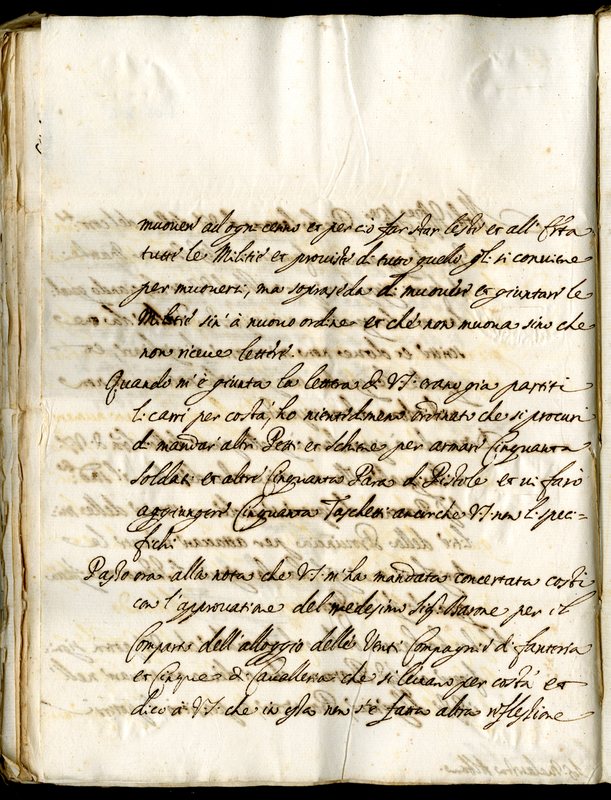 muouer ad ogni cenno et per ciò far star lesti et all' Erta
tutte le Militie et prouiste di tutto quello gli si conuiene
per muouersi, ma sopraseda di muouere et giuntare le
Militie sin' à nuouo ordine et che non muoua sino che
non riceue lettere.
Quando m'è giunta la lettera di V.S. erano gia partiti
li carri per costà, ho nientedimeno ordinato che si procuri
di mandar altri Petti et Schine per armare Cinquanta
soldati et altre Cinquanta Para di Pistole et ui farò
aggiungere Cinquanta Taschetti ancorche V.S. non li speci=
fichi.
Passo ora alla nota che V.S. m'ha mandata concertata costì
con l'approuatione del medesimo Sig.r Barone per il
Comparto dell'alloggio delle Venti Compagnie di fanteria
et Cinque di Caualleria che si leuano per costà et
dico à V.S. che in essa non s'è fatta altra riflessione